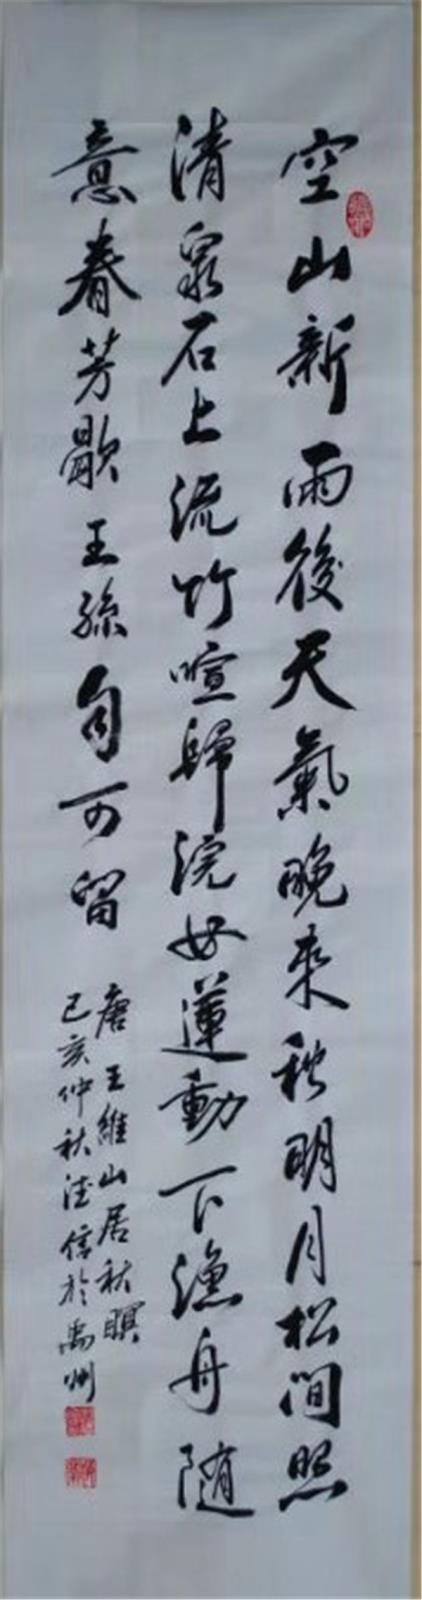 空山新雨後天氣晚来秋明月松间照
清泉石上流竹喧歸浣女蓮動下渔舟随
意春芳歇王孫自可留
唐王維山居秋暝
己亥仲秋德信於禹州